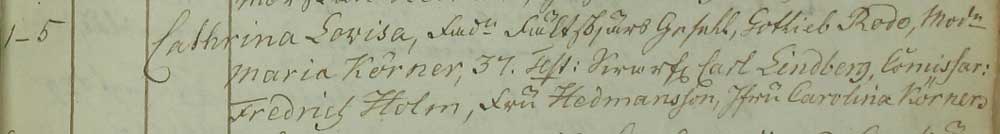 1–5 Cathrina Lovisa, Fad:n Fältskjärs Gesell, Gotlieb Rodo, Mod:n
Maria Körner, 37. Test: Carl Lindberg, Comissar:
Fredrich Holm, Fru Hedmansson, Jfru Carolina Körner